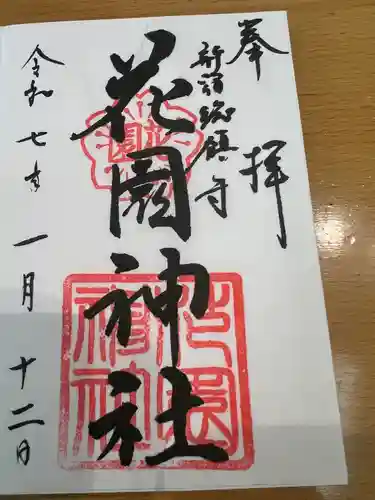 奉拝
新宿総鎮守
花園神社
令和七年一月十二日
花園神社